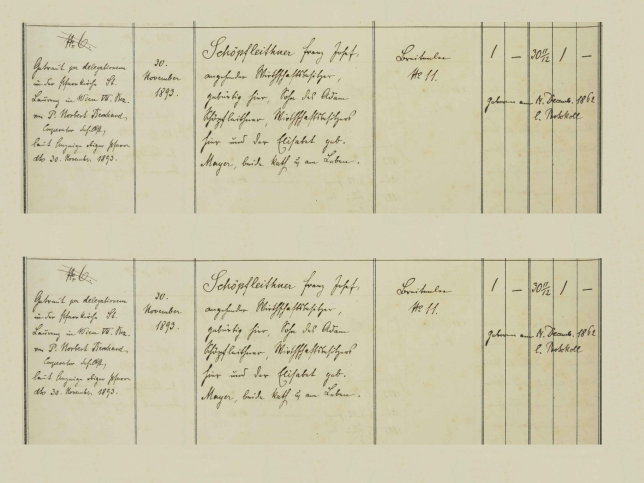 No 6.
Getraut per delegationem
in der Pfarrkirche St.
Laurenz in Wien VII. Bez.
von P. Norbert
Cooperator
laut Anzeige obigen Pfarre
dto 30. Novemb. 1893.
30.
November
1893.
Schöpfleithner Franz Josef,
angehender Wirthschaftsbesitzer,
gebürtig hier, Sohn des Adam
Schöpfleithner, Wirthschaftsbesitzers
hier und der Elisabet geb.
Mayer, beide kath. u. am Leben.
Breitenlee
No 11.
1 — 30 11/12 1 —
geboren am 14. Decemb. 1862
l. Protokoll
No 6.
Getraut per delegationem
in der Pfarrkirche St.
Laurenz in Wien VII. Bez.
von P. Norbert
Cooperator
laut Anzeige obigen Pfarre
dto 30. Novemb. 1893.
30.
November
1893.
Schöpfleithner Franz Josef,
angehender Wirthschaftsbesitzer,
gebürtig hier, Sohn des Adam
Schöpfleithner, Wirthschaftsbesitzers
hier und der Elisabet geb.
Mayer, beide kath. u. am Leben.
Breitenlee
No 11.
1 — 30 11/12 1 —
geboren am 14. Decemb. 1862
l. Protokoll